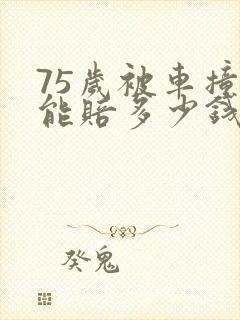 75歲被車撞
能賠多少錢
癸鬼